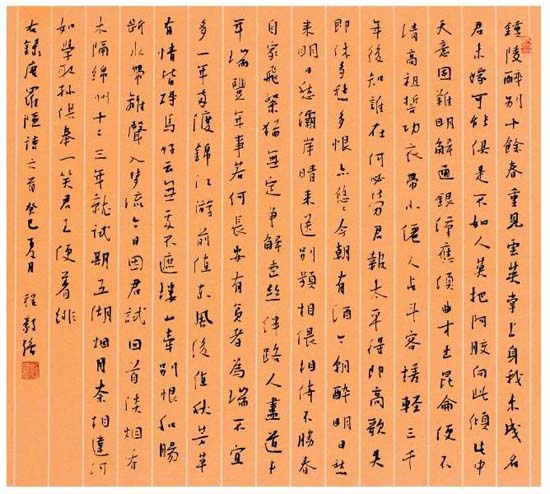 鍾陵醉別十餘春重見雲英掌上身我未成名
君未嫁可能俱是不如人莫把阿胶向此傾此中
天意固難明解通銀漢應須曲才出昆侖便不
清高祖誓功衣帶小仙人占斗客槎輕三千
年後知誰在何必勞君報太平得即高歌失
即休多愁多恨亦悠悠今朝有酒今朝醉明日愁
來明日愁灞岸晴來送別頻相偎相倚不勝春
自家飛絮猶無定爭解垂絲絆路人盡道豐
年瑞豐年事若何長安有貧者為瑞不宜
多一年兩度錦江游前值東風後值秋芳草
有情皆碍馬好云無處不遮樓山牽別恨和腸
斷水帶離聲入夢流今日因君試回首淡烟喬
木隔綿州十二三年就試期五湖烟月奈相違何
如學取孫供奉一笑君王便著緋
右錄唐羅隱詩六首癸巳夏月 程毅強